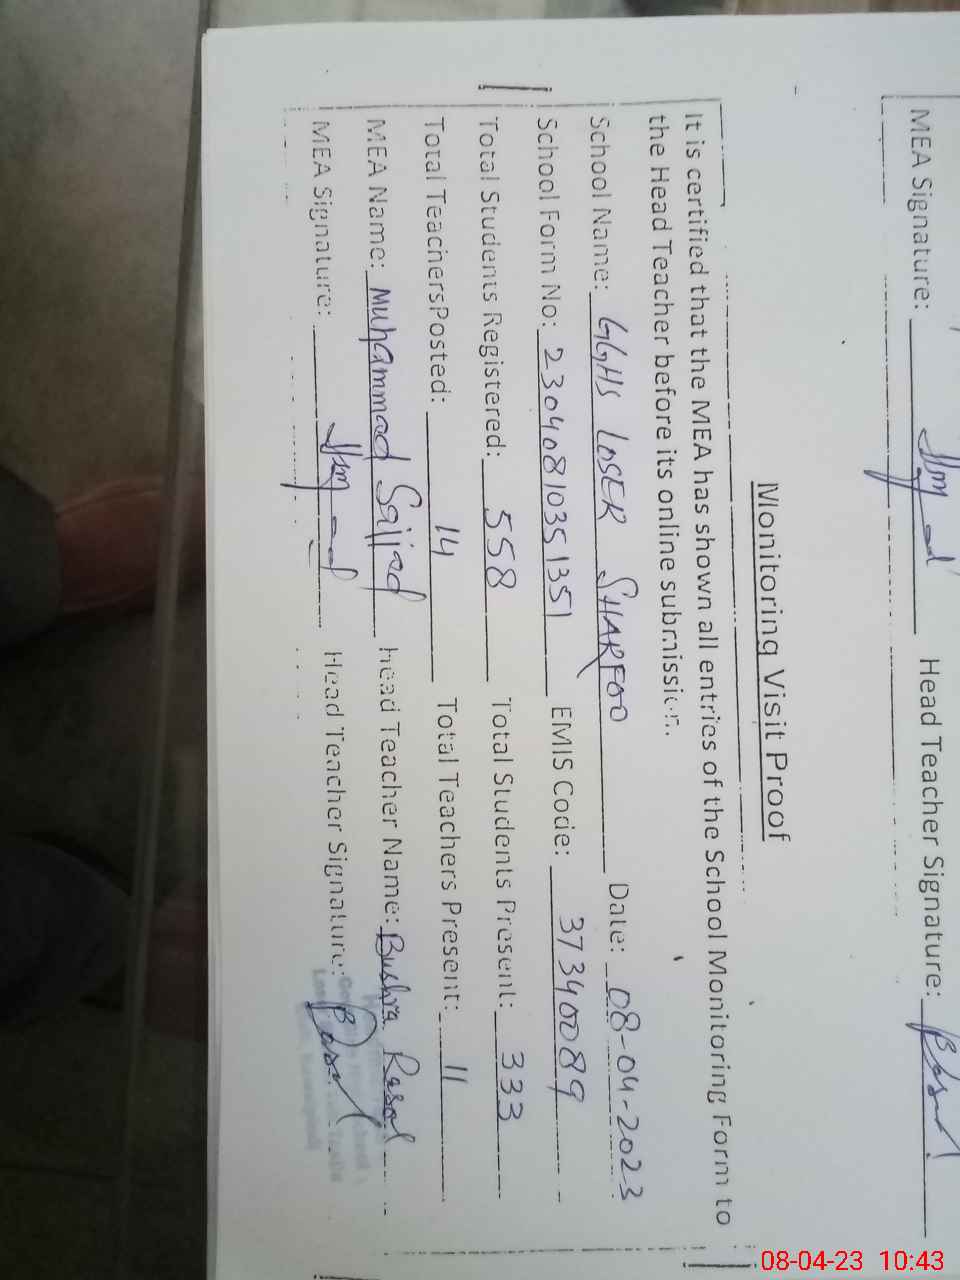 MEA Signature: Head Teacher Signature:
Monitoring Visit Proof
It is certified that the MEA has shown all entries of the School Monitoring Form to
the Head Teacher before its online submission.
School Name: GGHS LOSER SHARFOO Date: 08-04-2023
School Form No: 23040810351351 EMIS Code: 37340089
Total Students Registered: 558 Total Students Present: 333
Total TeachersPosted: 14 Total Teachers Present: 11
MEA Name: Muhammad Sajjad Head Teacher Name: Bushra Rasol
MEA Signature: Head Teacher Signature:
08-04-23 10:43